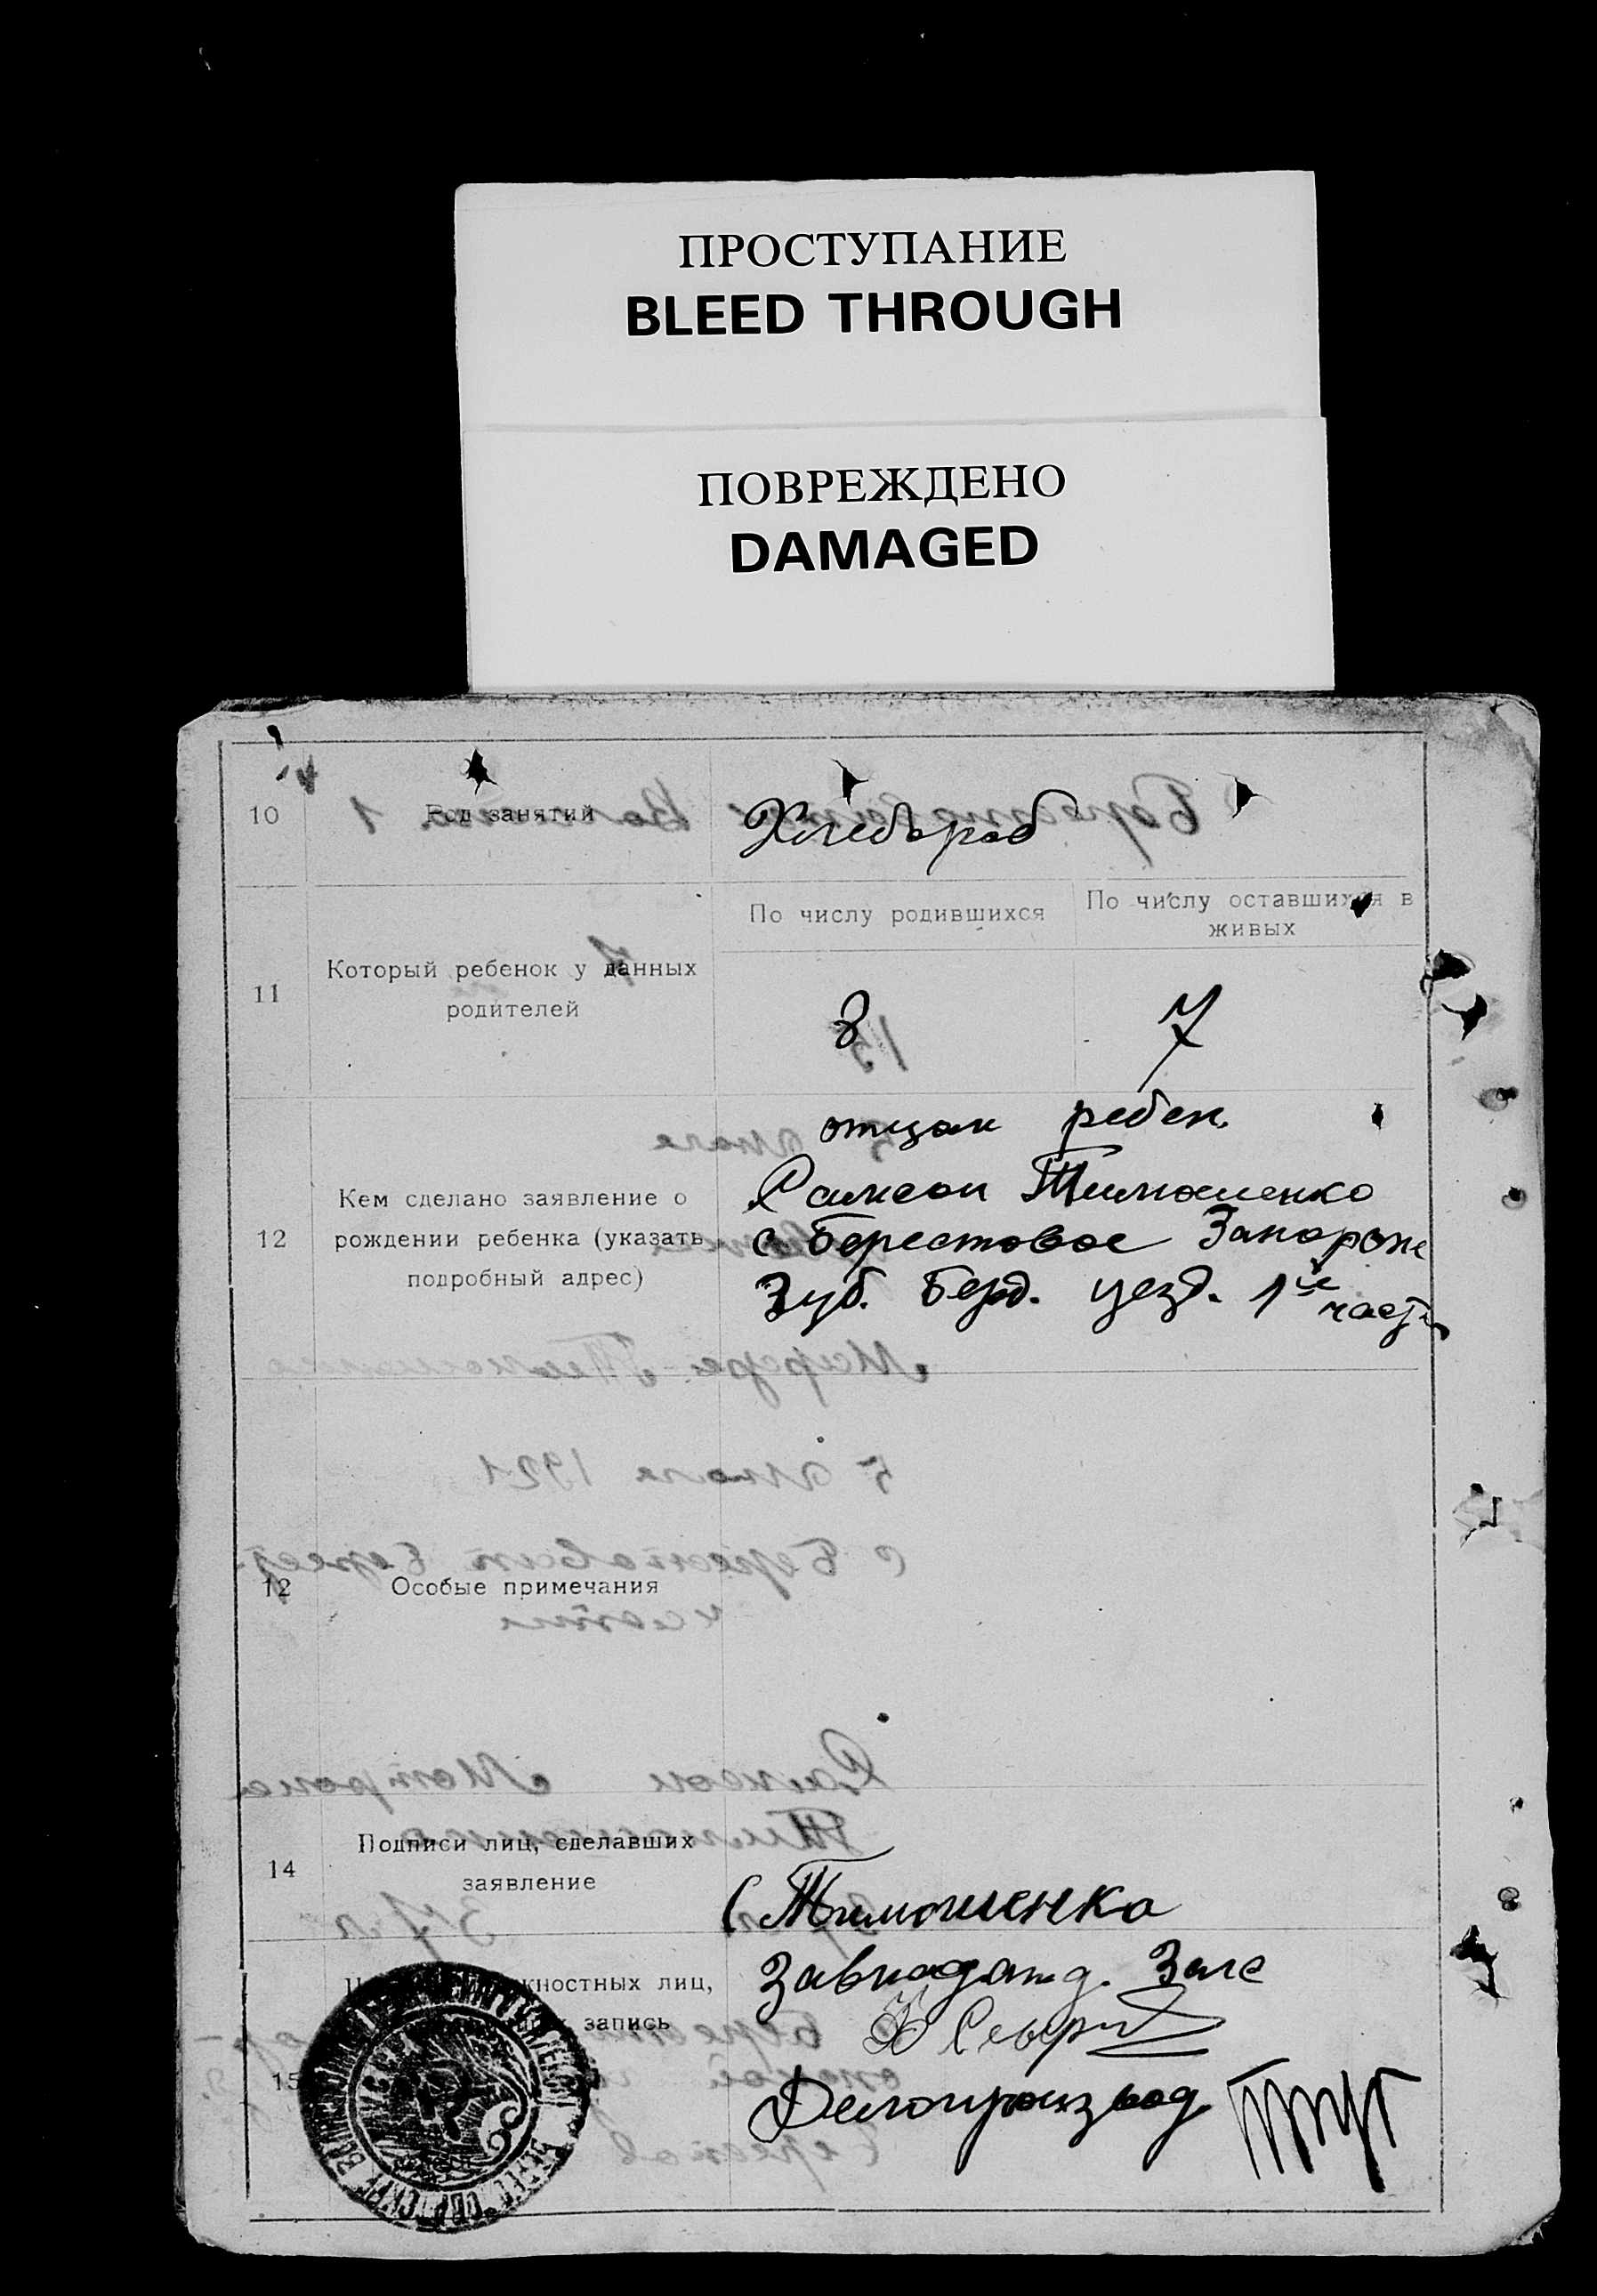 ПРОСТУПАНИЕ
BLEED THROUGH
ПОВРЕЖДЕНО
DAMAGED
10 Род занятий Хлебороб
По числу родившихся По числу оставшихся в
живых
11 Который ребенок у данных
родителей
8 7
отцом ребен.
12 Кем сделано заявление о
рождении ребенка (указать
подробный адрес)
Самсон Тимошенко
с. Берестовое Запорож
Губ. Берд. уезд. 1й части
12 Особые примечания
14 Подписи лиц, сделавших
заявление
С Тимошенко
15 должностных лиц,
запись
Завподотд. Загс
Делопроизвод